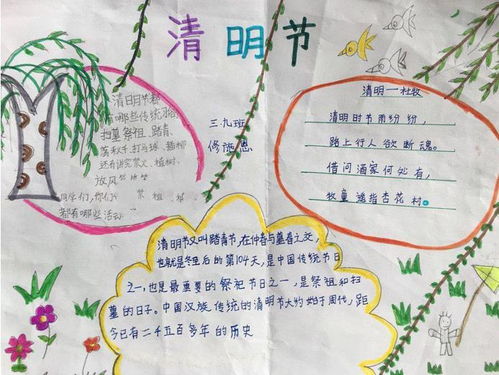 清明节
清明节都
有哪些传统活
扫墓祭祖、踏青、
荡秋千、打马球、插柳
还有讲究禁火、植树、
放风
同学们,你们
都有哪些活动
三.九班
清明一杜牧
清明时节雨纷纷,
路上行人欲断魂。
借问酒家何处有,
牧童遥指杏花村。
清明节又叫踏青节,在仲春与暮春之交,
也就是冬至后的第104天,是中国传统节日
之一,也是最重要的祭祀节日之一,是祭祖和扫
墓的日子。中国汉族传统的清明节大约始于周代,距
今已有二千五百多年的历史